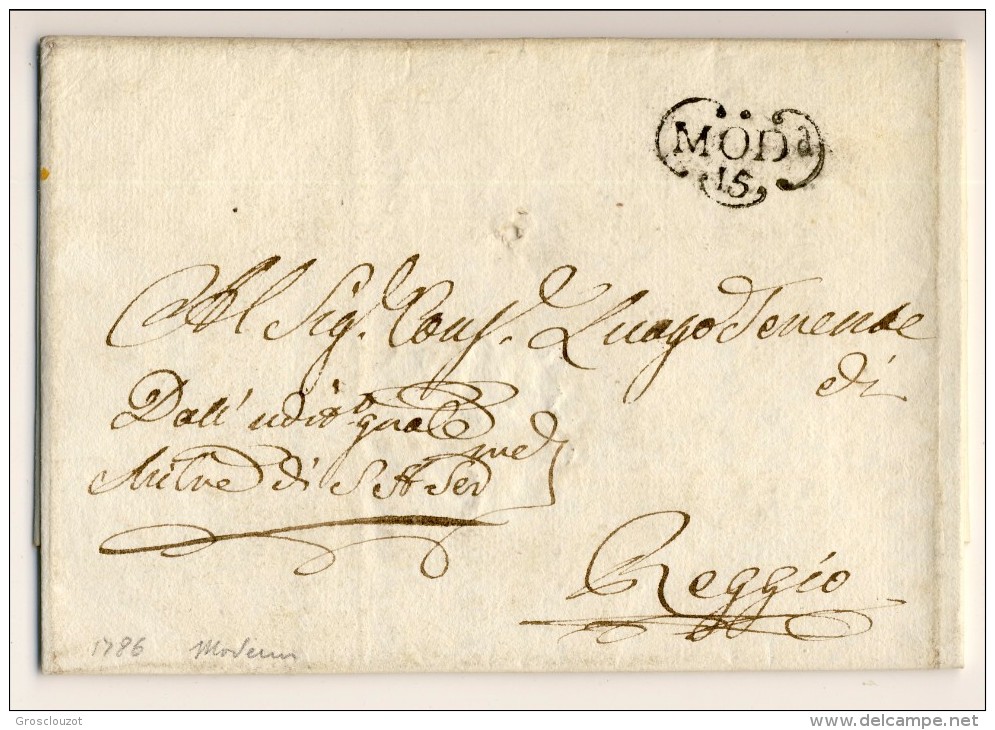 MODa
15
Al Sig.r Cons.r Luogo Tenente
di
Dall' udit.e gnale
Milre di S A Ser
Reggio
1786 Modena
Grosclouzot
delcampe.net